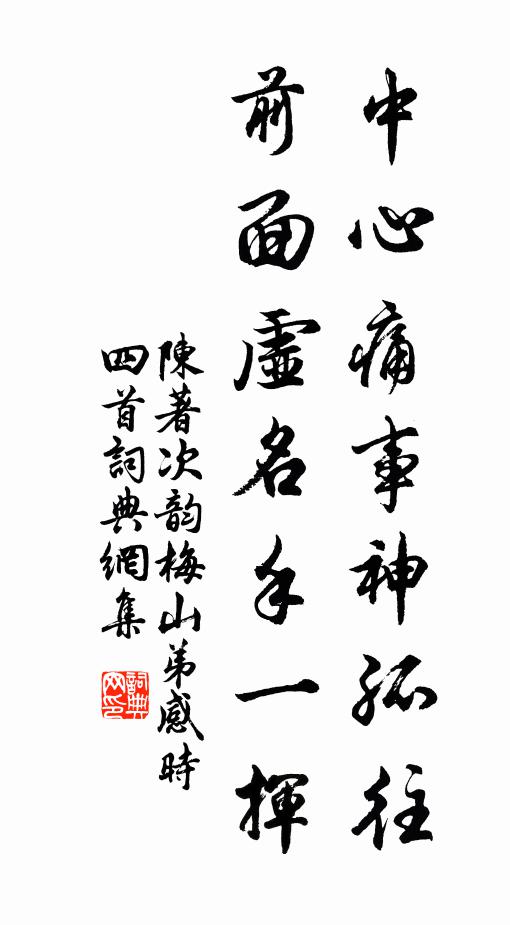 中心痛事神孤往
前面虛名手一揮
陳著次韵梅山弟感時
四首詞典網集
詞典
网印